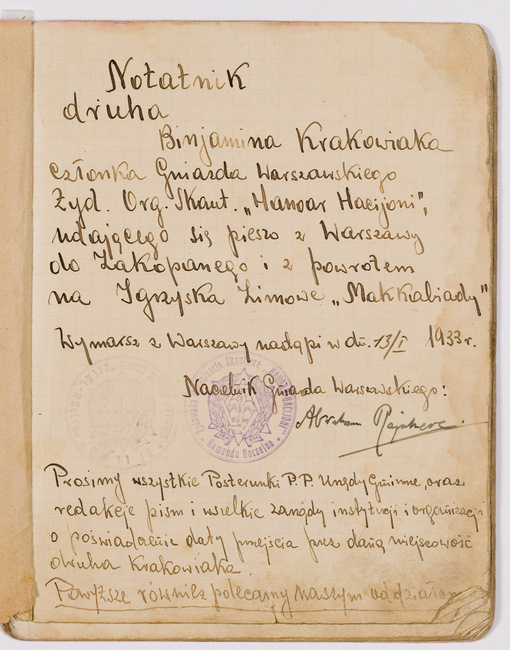 Notatnik
druha
Binjamina Krakowiaka
członka Gniazda Warszawskiego
Żyd. Org. Skaut. „Hanoar Hacijoni",
udającego się pieszo z Warszawy
do Zakopanego i z powrotem
na Igrzyska Zimowe „Makkabiady"
Wymarsz z Warszawy nastąpi w dn. 13/I 1933 r.
Naczelnik Gniazda Warszawskiego:
Abraham
Komenda Naczelna
Prosimy wszystkie Posterunki P.P. Urzędy Gminne, oraz
redakcje pism i wszelkie zarządy instytucji i organizacji
o poświadczenie daty przejścia przez daną miejscowość
druha Krakowiaka.
Powyższe również polecamy naszym oddziałom